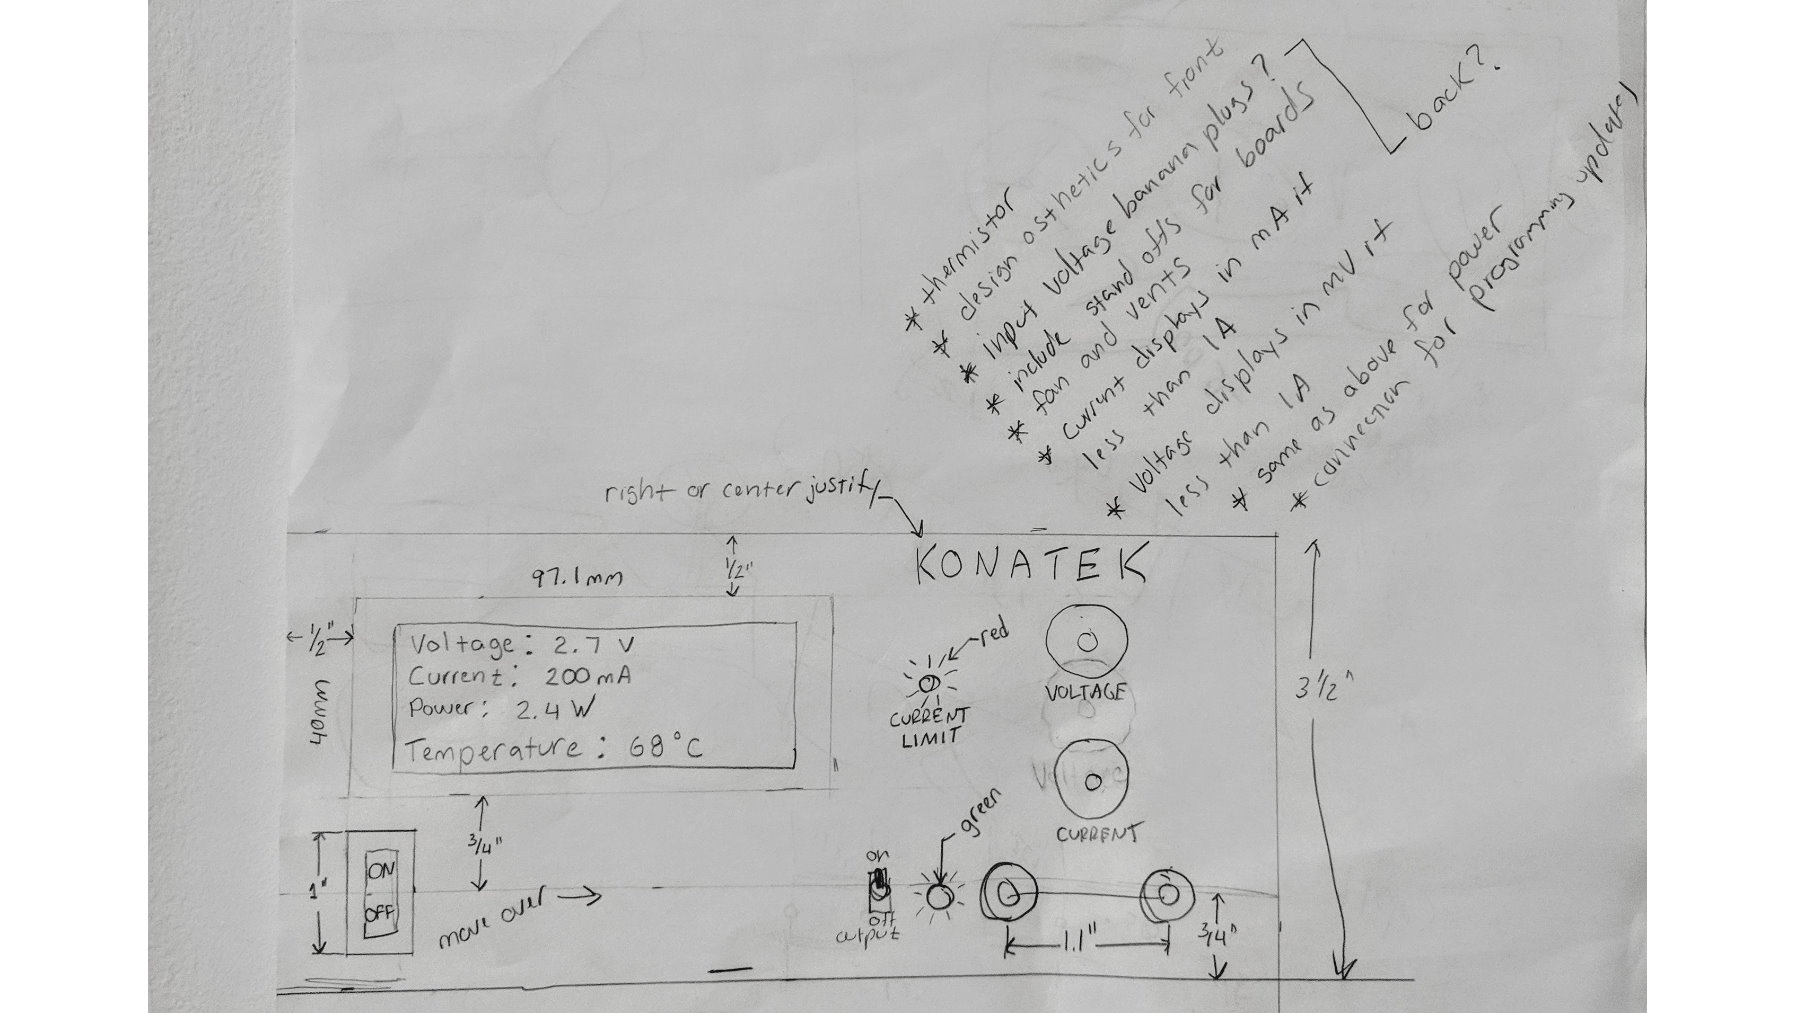 * thermistor
* design asthetics for front
* input voltage banana plugs?
back?
* include stand offs for boards
* fan and vents
* current displays in mA if
less than 1A
* voltage displays in mV if
less than 1A
* same as above for power
* connection for programming updates
right or center justify
KONATEK
1/2"
97.1mm
1/2"
40mm
Voltage: 2.7 V
Current: 200mA
Power: 2.4 W
Temperature: 68°C
red
CURRENT
LIMIT
VOLTAGE
3 1/2"
Voltage
CURRENT
green
3/4"
1"
ON
OFF
move over
on
off
output
1.1"
3/4"